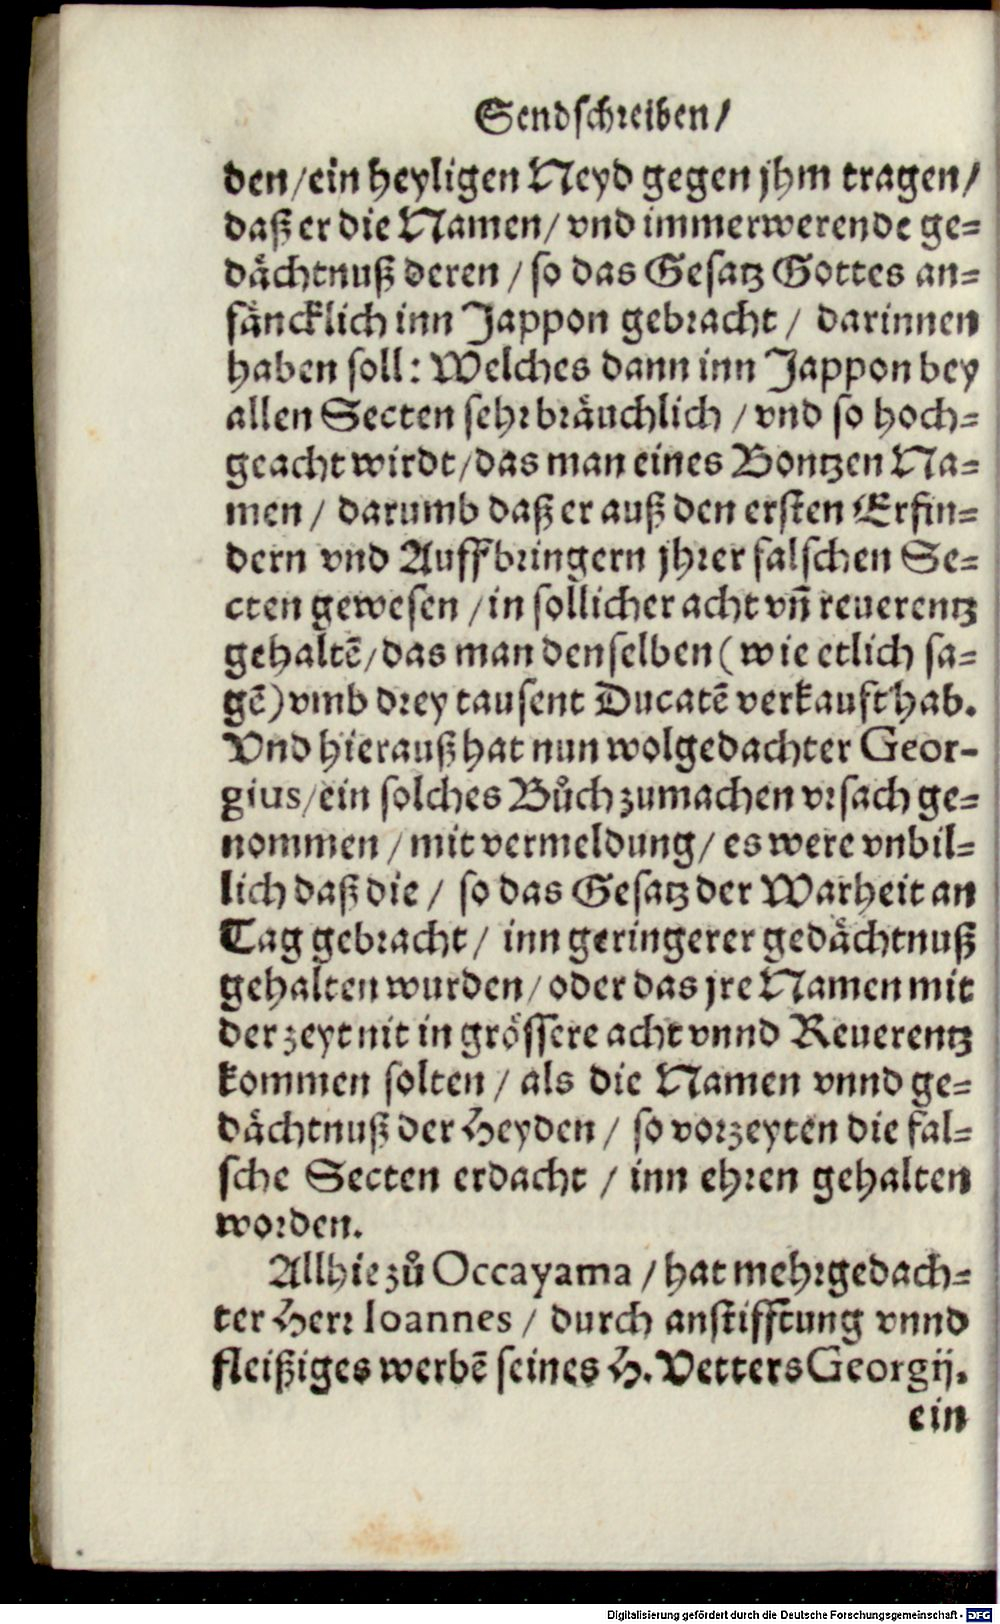 Sendschreiben/
den/ein heyligen Neyd gegen jhm tragen/
daß er die Namen/ vnd immerwerende ge=
dächtnuß deren / so das Gesatz Gottes an=
fäncklich inn Jappon gebracht / darinnen
haben soll: Welches dann inn Jappon bey
allen Secten sehr bräuchlich / vnd so hoch=
geacht wirdt/das man eines Bontzen Na=
men / darumb daß er auß den ersten Erfin=
dern vnd Auffbringern jhrer falschen Se=
cten gewesen / in sollicher acht vñ reuerentz
gehaltē/das man denselben (wie etlich sa=
gē) vmb drey tausent Ducatē verkaufft hab.
Vnd hierauß hat nun wolgedachter Geor-
gius/ein solches Bůch zumachen vrsach ge=
nommen / mit vermeldung/ es were vnbil=
lich daß die / so das Gesatz der Warheit an
Tag gebracht / inn geringerer gedächtnuß
gehalten wurden/ oder das jre Namen mit
der zeyt nit in grössere acht vnnd Reuerentz
kommen solten / als die Namen vnnd ge=
dächtnuß der Heyden / so vorzeyten die fal=
sche Secten erdacht / inn ehren gehalten
worden.
Allhie zů Occayama / hat mehrgedach=
ter Herr Ioannes / durch anstifftung vnnd
fleißiges werbē seines H. Vetters Georgij.
ein
Digitalisierung gefördert durch die Deutsche Forschungsgemeinschaft - DFG